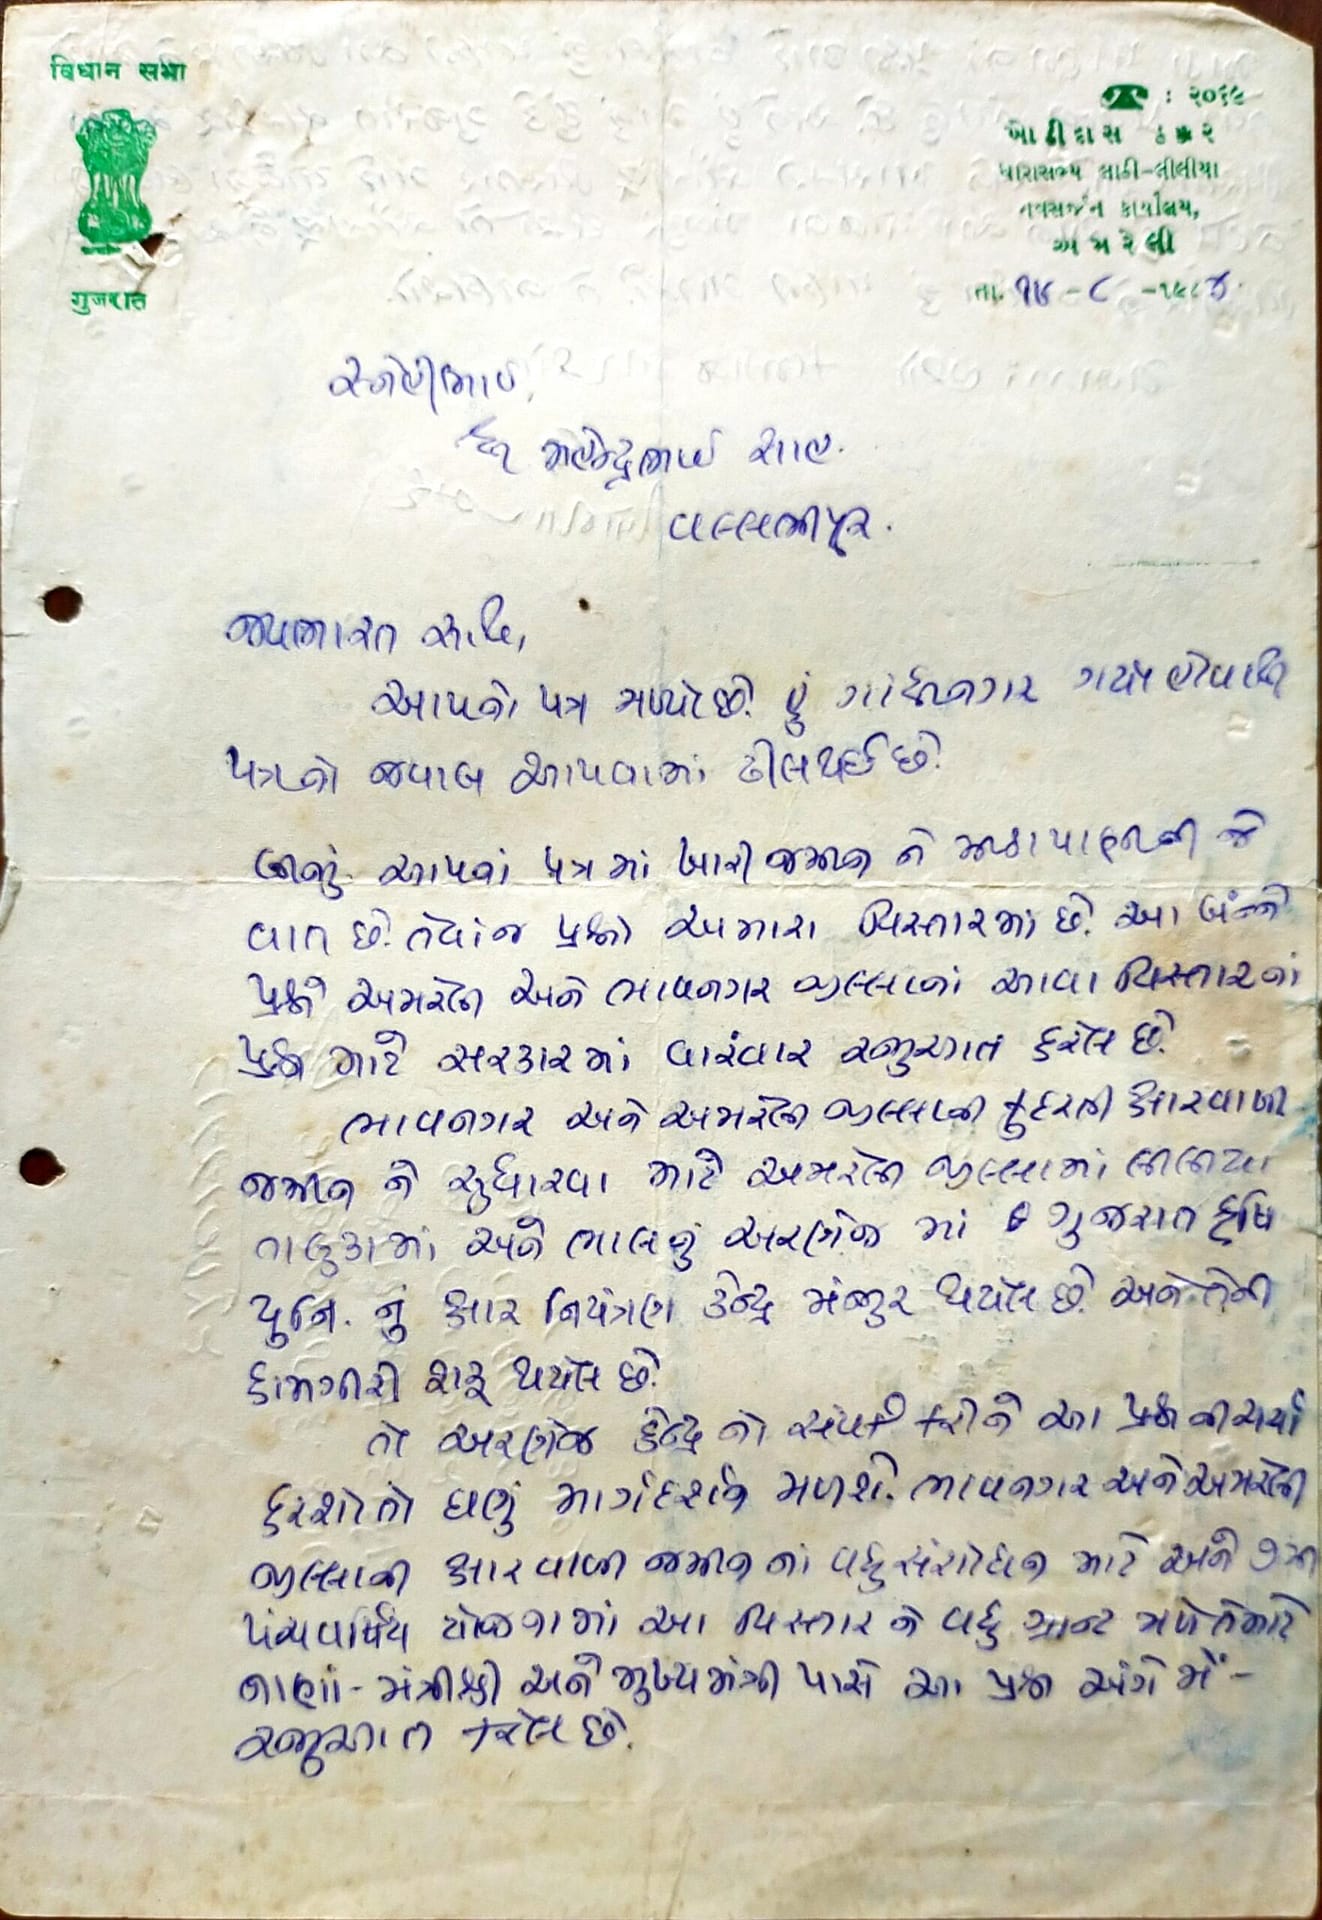 विधान सभा
गुजरात
☎ : ૨૦૬૯
ખોડીદાસ ઠક્કર
ધારાસભ્ય લાઠી-લીલીયા
નવસર્જન કાર્યાલય,
અમરેલી
તા. ૧૪ - ૮ - ૧૯૮૪
સ્નેહીભાઈ,
શ્રી મહેન્દ્રભાઈ શાહ.
વલ્લભીપુર.
જયભારત સાથ,
આપનો પત્ર મળ્યો છે. હું ગાંધીનગર ગયેલ હોવાથી
પત્રનો જવાબ આપવામાં ઢીલ થઈ છે.
બીજું આપનાં પત્રમાં ખારી જમીન ને મીઠા પાણીની જે
વાત છે. તેવાંજ પ્રશ્નો અમારા વિસ્તારમાં છે. આ બંન્ને
પ્રશ્ને અમરેલી અને ભાવનગર જીલ્લાનાં આવા વિસ્તારનાં
પ્રશ્ન માટે સરકારમાં વારંવાર રજુઆત કરેલ છે.
ભાવનગર અને અમરેલી જીલ્લાની કુદરતી ક્ષારવાળી
જમીન ને સુધારવા માટે અમરેલી જીલ્લામાં લીલીયા
તાલુકામાં અને ભાલનું અરણેજ માં ગુજરાત કૃષિ
યુનિ. નું ક્ષાર નિયંત્રણ કેન્દ્ર મંજુર થયેલ છે. અને તેની
કામગીરી શરૂ થયેલ છે.
તો અરણેજ કેન્દ્ર નો સંપર્ક કરીને આ પ્રશ્ન ની ચર્ચા
કરશો તો ઘણું માર્ગદર્શન મળશે. ભાવનગર અને અમરેલી
જીલ્લાની ક્ષારવાળી જમીન નાં વધુ સંશોધન માટે અને ૭મી
પંચવર્ષિય યોજનામાં આ વિસ્તાર ને વધુ ગ્રાન્ટ મળે તેમાટે
નાણાં-મંત્રીશ્રી અને મુખ્યમંત્રી પાસે આ પ્રશ્ન અંગે મેં-
રજુઆત કરેલ છે.